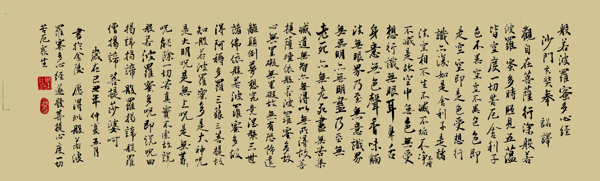 般若波羅蜜多心經
沙門玄奘奉 詔譯
觀自在菩薩行深般若
波羅蜜多時照見五蘊
皆空度一切苦厄舍利子
色不異空空不異色色即
是空空即是色受想行
識亦復如是舍利子是諸
法空相不生不滅不垢不淨不增
不減是故空中無色無受
想行識無眼耳鼻舌
身意無色聲香味觸
法無眼界乃至無意識界
無無明亦無無明盡乃至無
老死亦無老死盡無苦集
滅道無智亦無得以無所得故菩
提薩埵依般若波羅蜜多故
心無罣礙無罣礙故無有恐怖遠
離顛倒夢想究竟涅槃三世
諸佛依般若波羅蜜多故
得阿耨多羅三藐三菩提故
知般若波羅蜜多是大神呪
是大明呪是無上呪是無等等
呪能除一切苦真實不虛故說
般若波羅蜜多呪即說呪曰
揭諦揭諦般羅揭諦般羅
僧揭諦菩提莎婆訶
歲在己丑年仲夏五月
書於金陵 愿得以般若波
羅蜜多心經發菩提心度一切
苦厄眾生